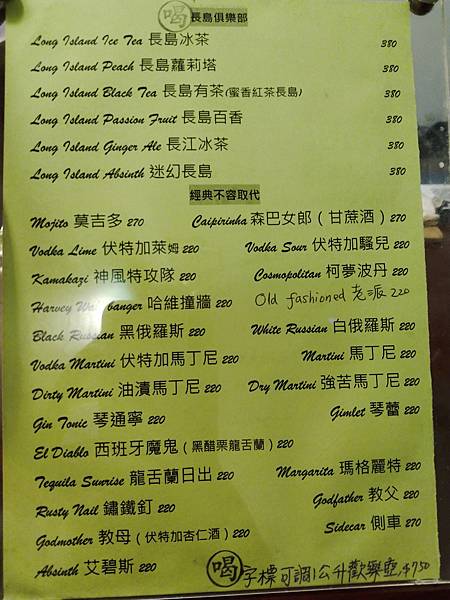 喝 長島俱樂部
Long Island Ice Tea 長島冰茶 380
Long Island Peach 長島蘿莉塔 380
Long Island Black Tea 長島有茶(蜜香紅茶長島) 380
Long Island Passion Fruit 長島百香 380
Long Island Ginger Ale 長江冰茶 380
Long Island Absinth 迷幻長島 380
經典不容取代
Mojito 莫吉多 270 Caipirinha 森巴女郎(甘蔗酒) 270
Vodka Lime 伏特加萊姆 220 Vodka Sour 伏特加騷兒 220
Kamakazi 神風特攻隊 220 Cosmopolitan 柯夢波丹 220
Harvey Wallbanger 哈維撞牆 220 Old fashioned 老派 220
Black Russian 黑俄羅斯 220 White Russian 白俄羅斯 220
Vodka Martini 伏特加馬丁尼 220 Martini 馬丁尼 220
Dirty Martini 油漬馬丁尼 220 Dry Martini 強苦馬丁尼 220
Gin Tonic 琴通寧 220 Gimlet 琴蕾 220
El Diablo 西班牙魔鬼(黑醋栗龍舌蘭) 220
Tequila Sunrise 龍舌蘭日出 220 Margarita 瑪格麗特 220
Rusty Nail 鏽鐵釘 220 Godfather 教父 220
Godmother 教母(伏特加杏仁酒) 220 Sidecar 側車 270
Absinth 艾碧斯 220
喝 字標可調1公升歡樂壺,$750